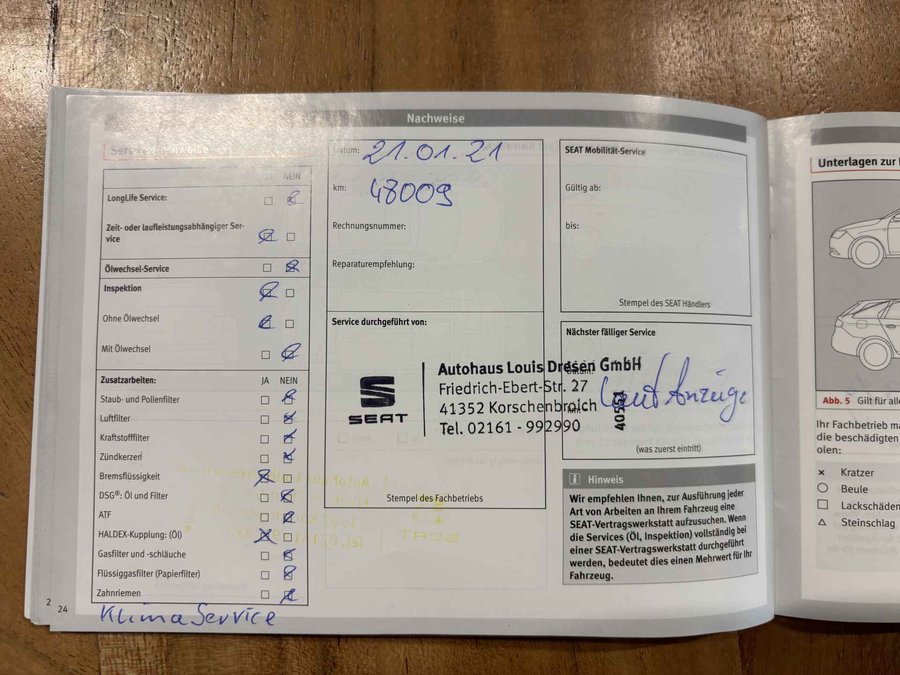 Nachweise
Servicenachweise
JA NEIN
LongLife Service:
Zeit- oder laufleistungsabhängiger Ser-
vice
Ölwechsel-Service
Inspektion
Ohne Ölwechsel
Mit Ölwechsel
Zusatzarbeiten: JA NEIN
Staub- und Pollenfilter
Luftfilter
Kraftstofffilter
Zündkerzen
Bremsflüssigkeit
DSG®: Öl und Filter
ATF
HALDEX-Kupplung: (Öl)
Gasfilter und -schläuche
Flüssiggasfilter (Papierfilter)
Zahnriemen
Klima Service
2
24
Datum: 21.01.21
km: 48009
Rechnungsnummer:
Reparaturempfehlung:
Service durchgeführt von:
SEAT
Autohaus Louis Dresen GmbH
Friedrich-Ebert-Str. 27
41352 Korschenbroich
Tel. 02161 - 992990
40551
Stempel des Fachbetriebs
SEAT Mobilität-Service
Gültig ab:
bis:
Stempel des SEAT Händlers
Nächster fälliger Service
Datum:
km:
Laut Anzeige
(was zuerst eintritt)
i Hinweis
Wir empfehlen Ihnen, zur Ausführung jeder
Art von Arbeiten an Ihrem Fahrzeug eine
SEAT-Vertragswerkstatt aufzusuchen. Wenn
die Services (Öl, Inspektion) vollständig bei
einer SEAT-Vertragswerkstatt durchgeführt
werden, bedeutet dies einen Mehrwert für Ihr
Fahrzeug.
Unterlagen zur
Abb. 5 Gilt für alle
Ihr Fachbetrieb
die beschädigten
olen:
× Kratzer
Beule
Lackschäden
Steinschlag